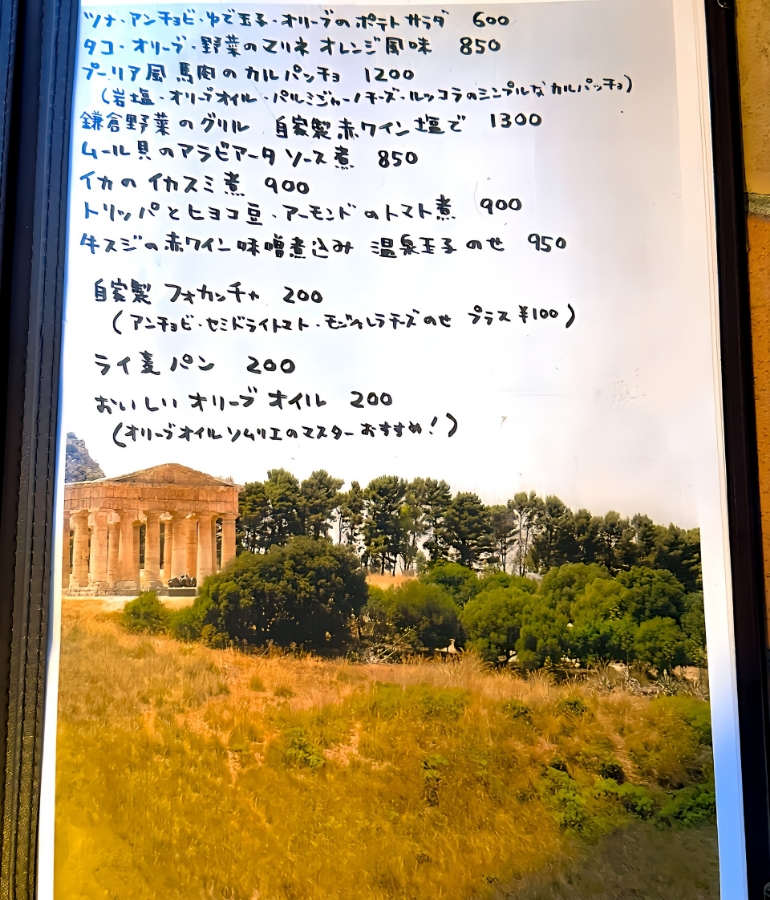 ツナ・アンチョビ・ゆで玉子・オリーブのポテトサラダ 600
タコ・オリーブ・野菜のマリネ オレンジ風味 850
プーリア風 馬肉のカルパッチョ 1200
(岩塩・オリーブオイル・パルミジャーノチーズ・ルッコラのシンプルなカルパッチョ)
鎌倉野菜のグリル 自家製赤ワイン塩で 1300
ムール貝のアラビアータソース煮 850
イカのイカスミ煮 900
トリッパとヒヨコ豆・アーモンドのトマト煮 900
牛スジの赤ワイン味噌煮込み 温泉玉子のせ 950
自家製 フォカッチャ 200
(アンチョビ・セミドライトマト・モッツァレラチーズのせ プラス¥100)
ライ麦パン 200
おいしいオリーブオイル 200
(オリーブオイルソムリエのマスターおすすめ!)